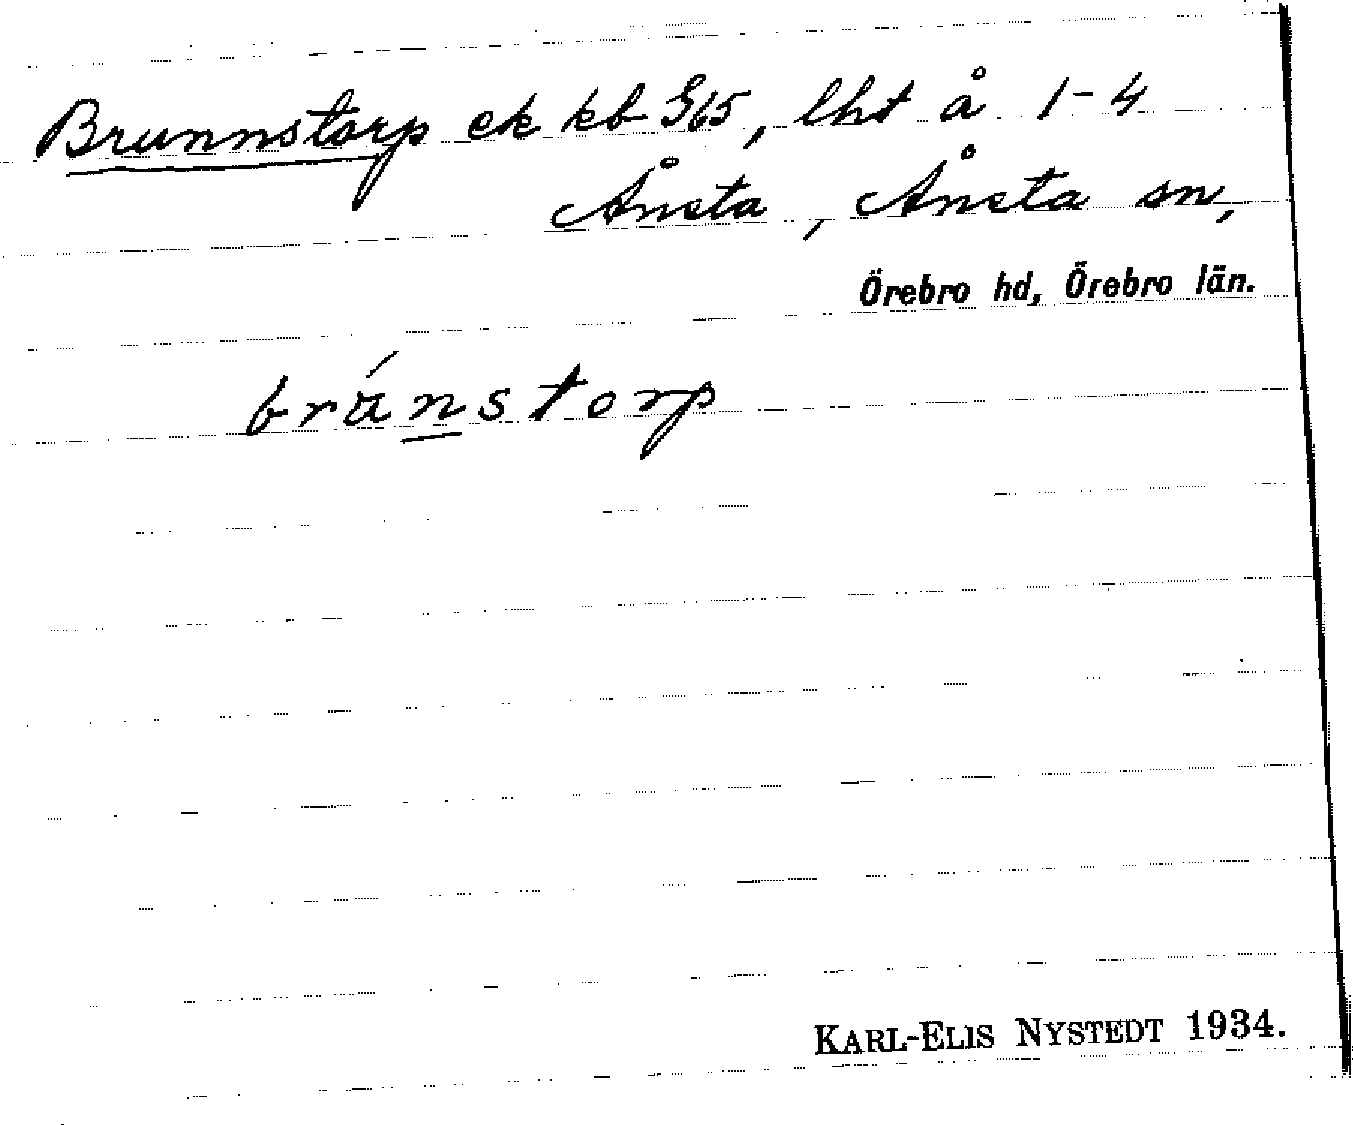 Brunnstorp ek kb G65, lht å 1-4
Ånsta, Ånsta sn,
Örebro hd, Örebro län.
bránstorp
KARL-ELIS NYSTEDT 1934.